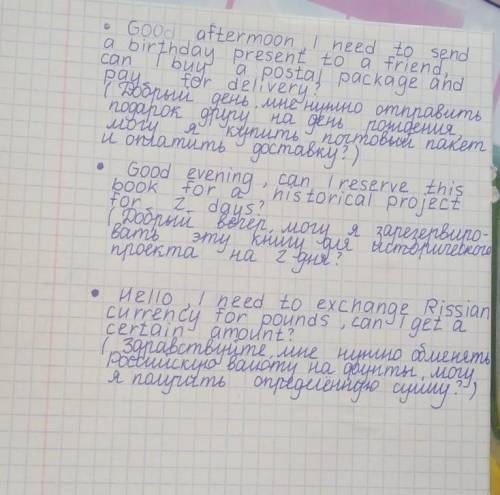 • Good aftermoon, I need to send
a birthday present to a friend,
can I buy a postal package and
pay for delivery?
(Добрый день, мне нужно отправить
подарок другу на день рождения,
могу я купить почтовый пакет
и оплатить доставку?)
• Good evening, can I reserve this
book for a historical project
for 2 days?
(Добрый вечер, могу я зарезервиро-
вать эту книгу для исторического
проекта на 2 дня?
• Hello, I need to exchange Rissian
currency for pounds, can I get a
certain amount?
(Здравствуйте, мне нужно обменять
Российскую валюту на фунты, могу
я получить определенную сумму?)